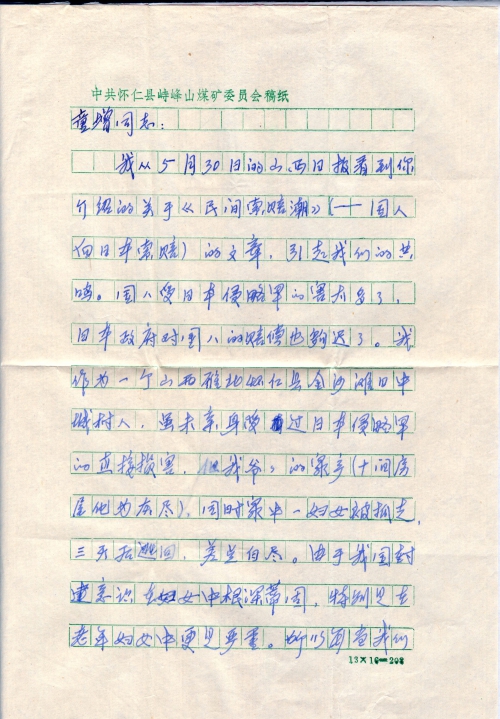 中共怀仁县峙峰山煤矿委员会稿纸
童增同志：
我从5月30日的山西日报看到你
介绍的关于《民间索赔潮》（一国人
向日本索赔）的文章，引起我们的共
鸣。国人受日本侵略军的害太多了，
日本政府对国人的赔偿也够迟了。我
作为一个山西雁北怀仁县金沙滩旧中
城村人，虽未亲身受过日本侵略军
的直接损害，但我爷々的家产（十间房
屋化为灰尽），同时家中一妇女被抓走，
三天后逃回，差点自尽。由于我国封
建意识在妇女中根深蒂固，特别是在
老年妇女中更是严重。所以每当我们
13×16=208